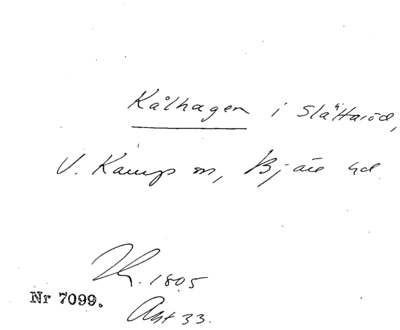 Kålhagen i Slättaröd,
V. Karup sn, Bjäre hd.
Lk. 1805
Nr 7099.
Akt 33.